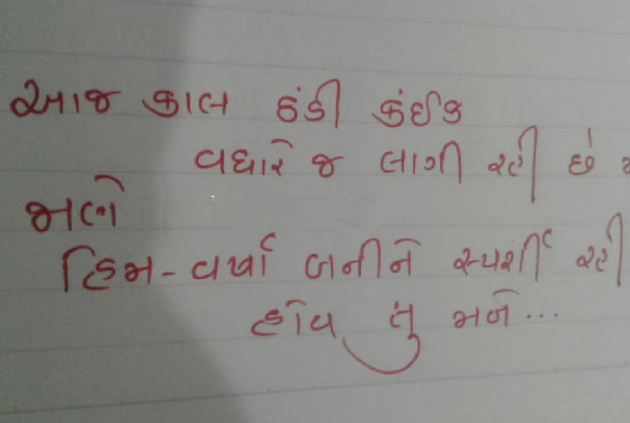 આજ કાલ ઠંડી કંઈક
વધારે જ લાગી રહી છે
જાણે
હિમ-વર્ષા બનીને સ્પર્શી રહી
હોય તું મને...